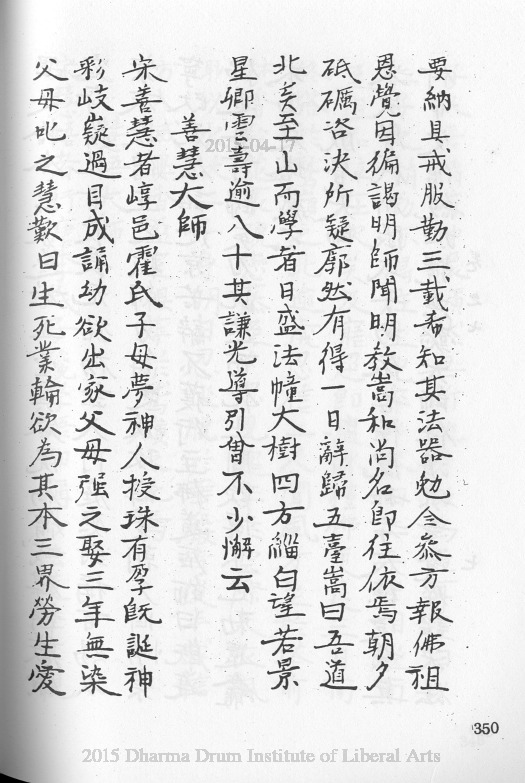 要納具戒服勤三載希知其法器勉令叅方報佛祖
恩覺因徧謁明師聞明教嵩和尚名即往依焉朝夕
砥礪咨決所疑廓然有得一日辭歸五臺嵩曰吾道
北矣至山而學者日盛法幢大樹四方緇白望若景
星卿雲壽逾八十其謙光導引曾不少懈云
善慧大師
宋善慧者崞邑霍氏子母夢神人授珠有孕既誕神
彩岐嶷過目成誦幼欲出家父母強之娶三年無染
父母叱之慧歎曰生死業輪欲為其本三界勞生愛
350
2015-04-17
2015 Dharma Drum Institute of Liberal Arts